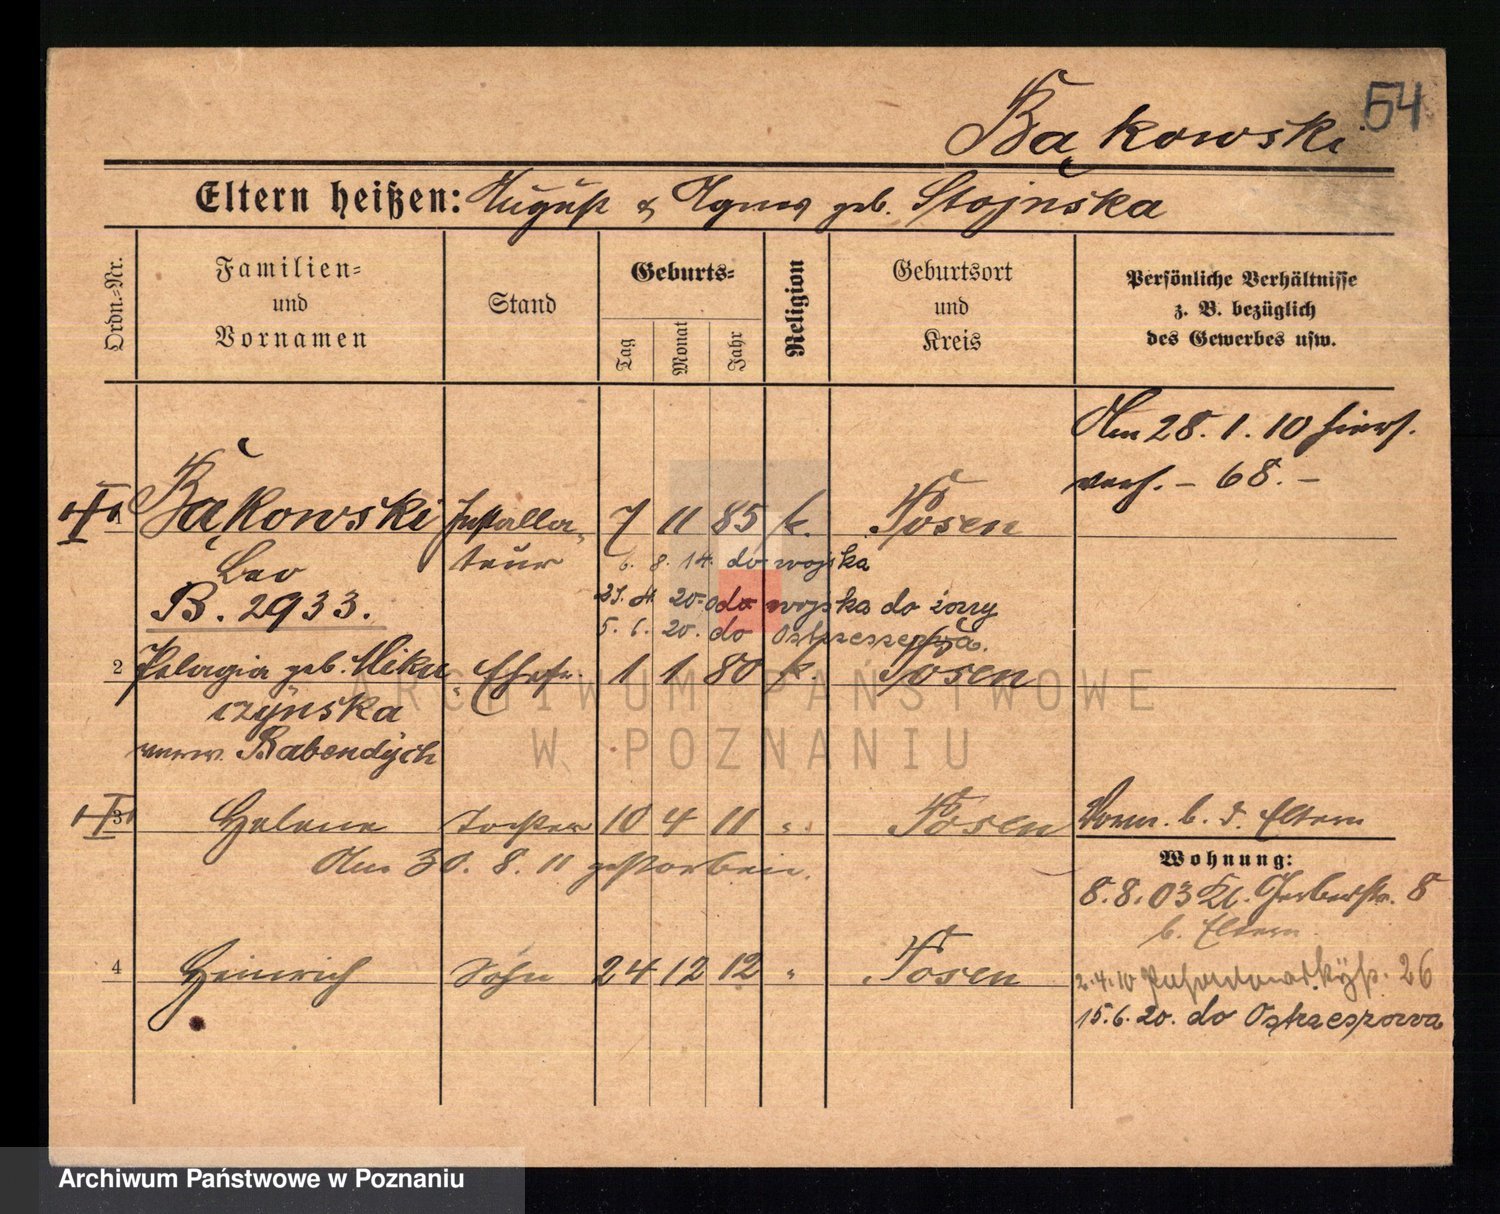 54
Bąkowski
Eltern heißen: August & Agnes geb. Stojnska
Ordn.-Nr.
Familien-
und
Vornamen
Stand
Geburts-
Tag
Monat
Jahr
Religion
Geburtsort
und
Kreis
Persönliche Verhältnisse
z. B. bezüglich
des Gewerbes usw.
Am 28. 1. 10 hiers.
verh. – 68. –
1 Bąkowski Installa- 7 11 85 k. Posen
Leo teur 6. 8. 14. do wojska
B. 2933. 20 do wojska do żony
5. 6. 20. do Ostrzeszowa.
2 Pelagia geb. Miku Ehefr. 1 1 80 k. Posen
czynska
verw. Babendych
3 Helene Tochter 10 4 11 " Posen
Am 30. 8. 11 gestorben.
4 Heinrich Sohn 24 12 12 " Posen
Vorm. b. d. Eltern
Wohnung:
8. 8. 03 Kl. Gerberstr. 8
b. Eltern
2. 4. 10 26
15. 6. 20. do Ostrzeszowa
ARCHIWUM PAŃSTWOWE
W POZNANIU
Archiwum Państwowe w Poznaniu